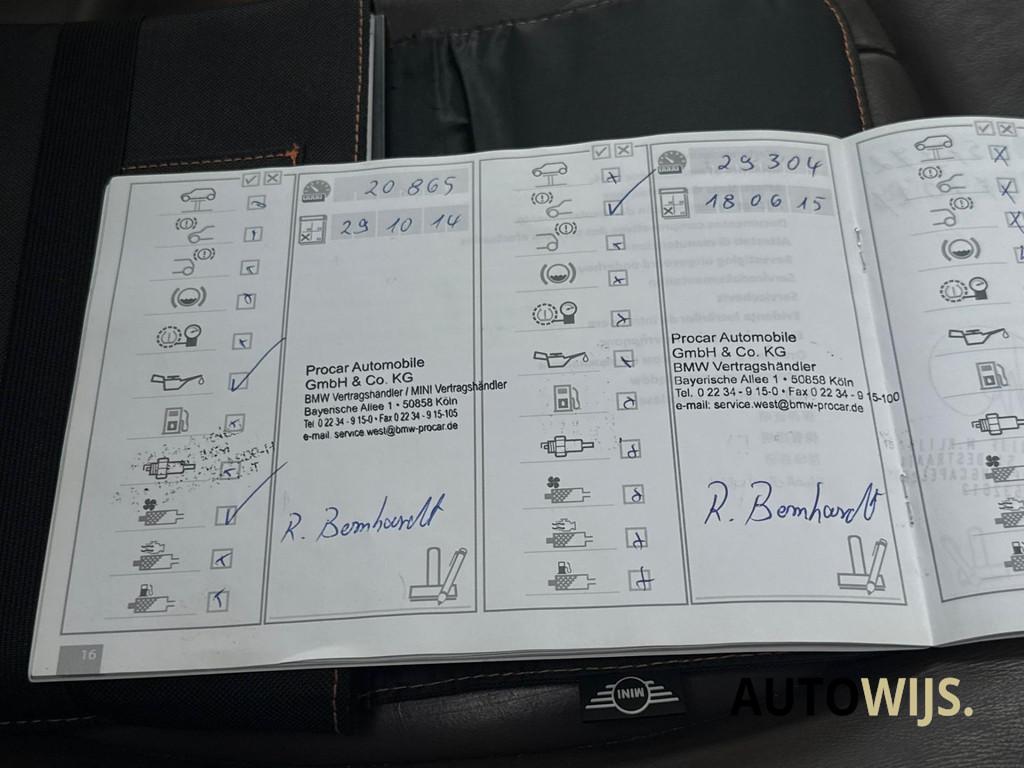 20 865
29 10 14
Procar Automobile
GmbH & Co. KG
BMW Vertragshändler / MINI Vertragshändler
Bayerische Allee 1 • 50858 Köln
Tel 0 22 34 - 9 15-0 • Fax 0 22 34 - 9 15-105
e-mail: service.west@bmw-procar.de
R. Bernhardt
16
29 304
18 06 15
Procar Automobile
GmbH & Co. KG
BMW Vertragshändler
Bayerische Allee 1 • 50858 Köln
Tel. 0 22 34 - 9 15-0 • Fax 0 22 34 - 9 15-100
e-mail: service.west@bmw-procar.de
R. Bernhardt
MINI
AUTOWIJS.